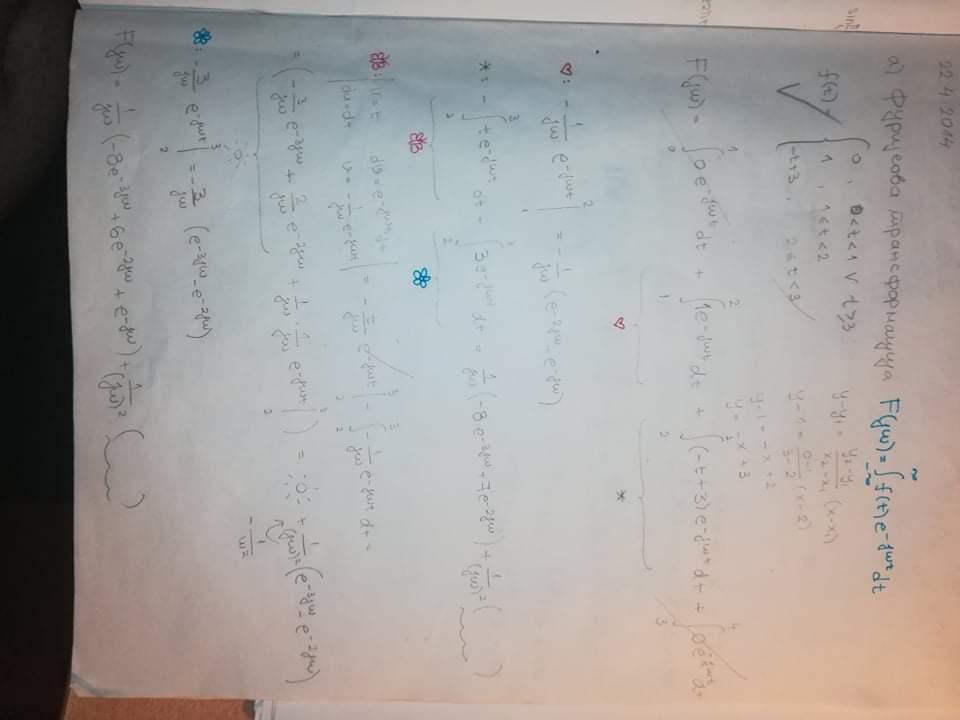 22 4 2014
а) Фуријеова трансформација F(jω) = ∫ f(t) e^-jωt dt
f(t) = { 0, 0<t<1 ∨ t≥3
1, 1≤t<2
-t+3, 2≤t<3
y-y₁ = (y₂-y₁)/(x₂-x₁) (x-x₁)
y-1 = (0-1)/(3-2) (x-2)
y-1 = -x+2
y = -x+3
F(jω) = ∫₀¹ 0 e^-jωt dt + ∫₁² 1e^-jωt dt + ∫₂³ (-t+3) e^-jωt dt + ∫₃⁴ 0 e^-jωt dt
♡ *
♡: -1/jω e^-jωt |₁² = -1/jω (e^-2jω - e^-jω)
*: -∫₂³ t e^-jωt dt + ∫₂³ 3e^-jωt dt = 1/jω (-8e^-3jω + 7e^-2jω) + 1/(jω)² ( )
u=t dv=e^-jωt dt
du=dt v= 1/jω e^-jωt | = -t/jω e^-jωt |₂³ - ∫₂³ -1/jω e^-jωt dt =
= (-3/jω e^-3jω + 2/jω e^-2jω + 1/jω · 1/jω e^-jωt |₂³) = + 1/(jω)² (e^-3jω - e^-2jω)
-1/ω²
: -3/jω e^-jωt |₂³ = -3/jω (e^-3jω - e^-2jω)
F(jω) = 1/jω (-8e^-3jω + 6e^-2jω + e^-jω) + 1/(jω)² ( )